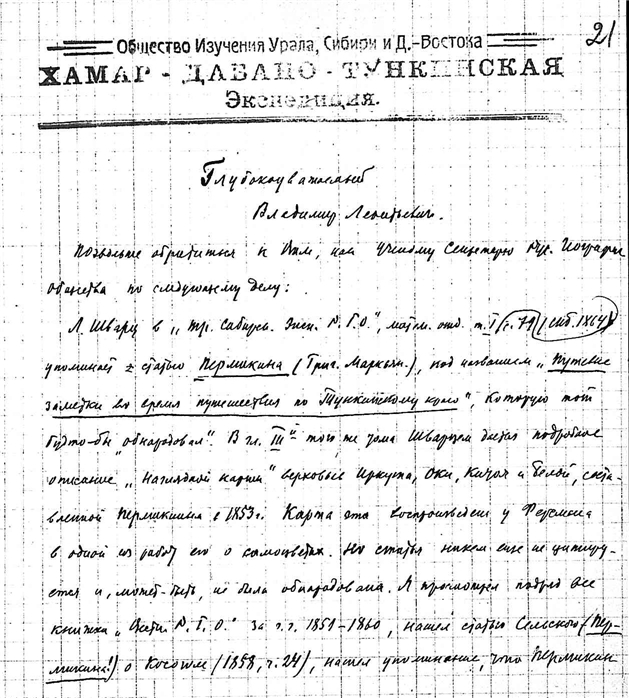 21
Общество Изучения Урала, Сибири и Д.-Востока
ХАМАР-ДАБАНО-ТУНКИНСКАЯ
Экспедиция.
Глубокоуважаемый
Владимир Леонтьевич.
Позвольте обратиться к Вам, как ученому Секретарю Рус. Географ.
Общества по следующему делу:
Л. Шварц в „Тр. Сибирск. Эксп. Р.Г.О.", матем. отд. т. I (с. 79) (СПб. 1864)
упоминает статью Пермикина (Григ. Маркъян.), под названием „Путевые
заметки во время путешествия по Тункинскому краю", которую тот
будто-бы „обнародовал". В гл. III того же тома Шварцем дается подробное
описание „наглядной карты" верховьев Иркута, Оки, Китоя и Белой, соста-
вленной Пермикиным в 1853 г. Карта эта воспроизведена у Ферсмана
в одной из работ его о самоцветах. Но статья никем еще не цитиру-
ется и, может-быть, не была обнародована. Я просмотрел подряд все
книжки „Вестн. Р.Г.О." за г.г. 1851-1860, нашел статью Сельского (Пер-
микина!) о Косоголе (1858, ч. 24), нашел упоминание, что Пермикин